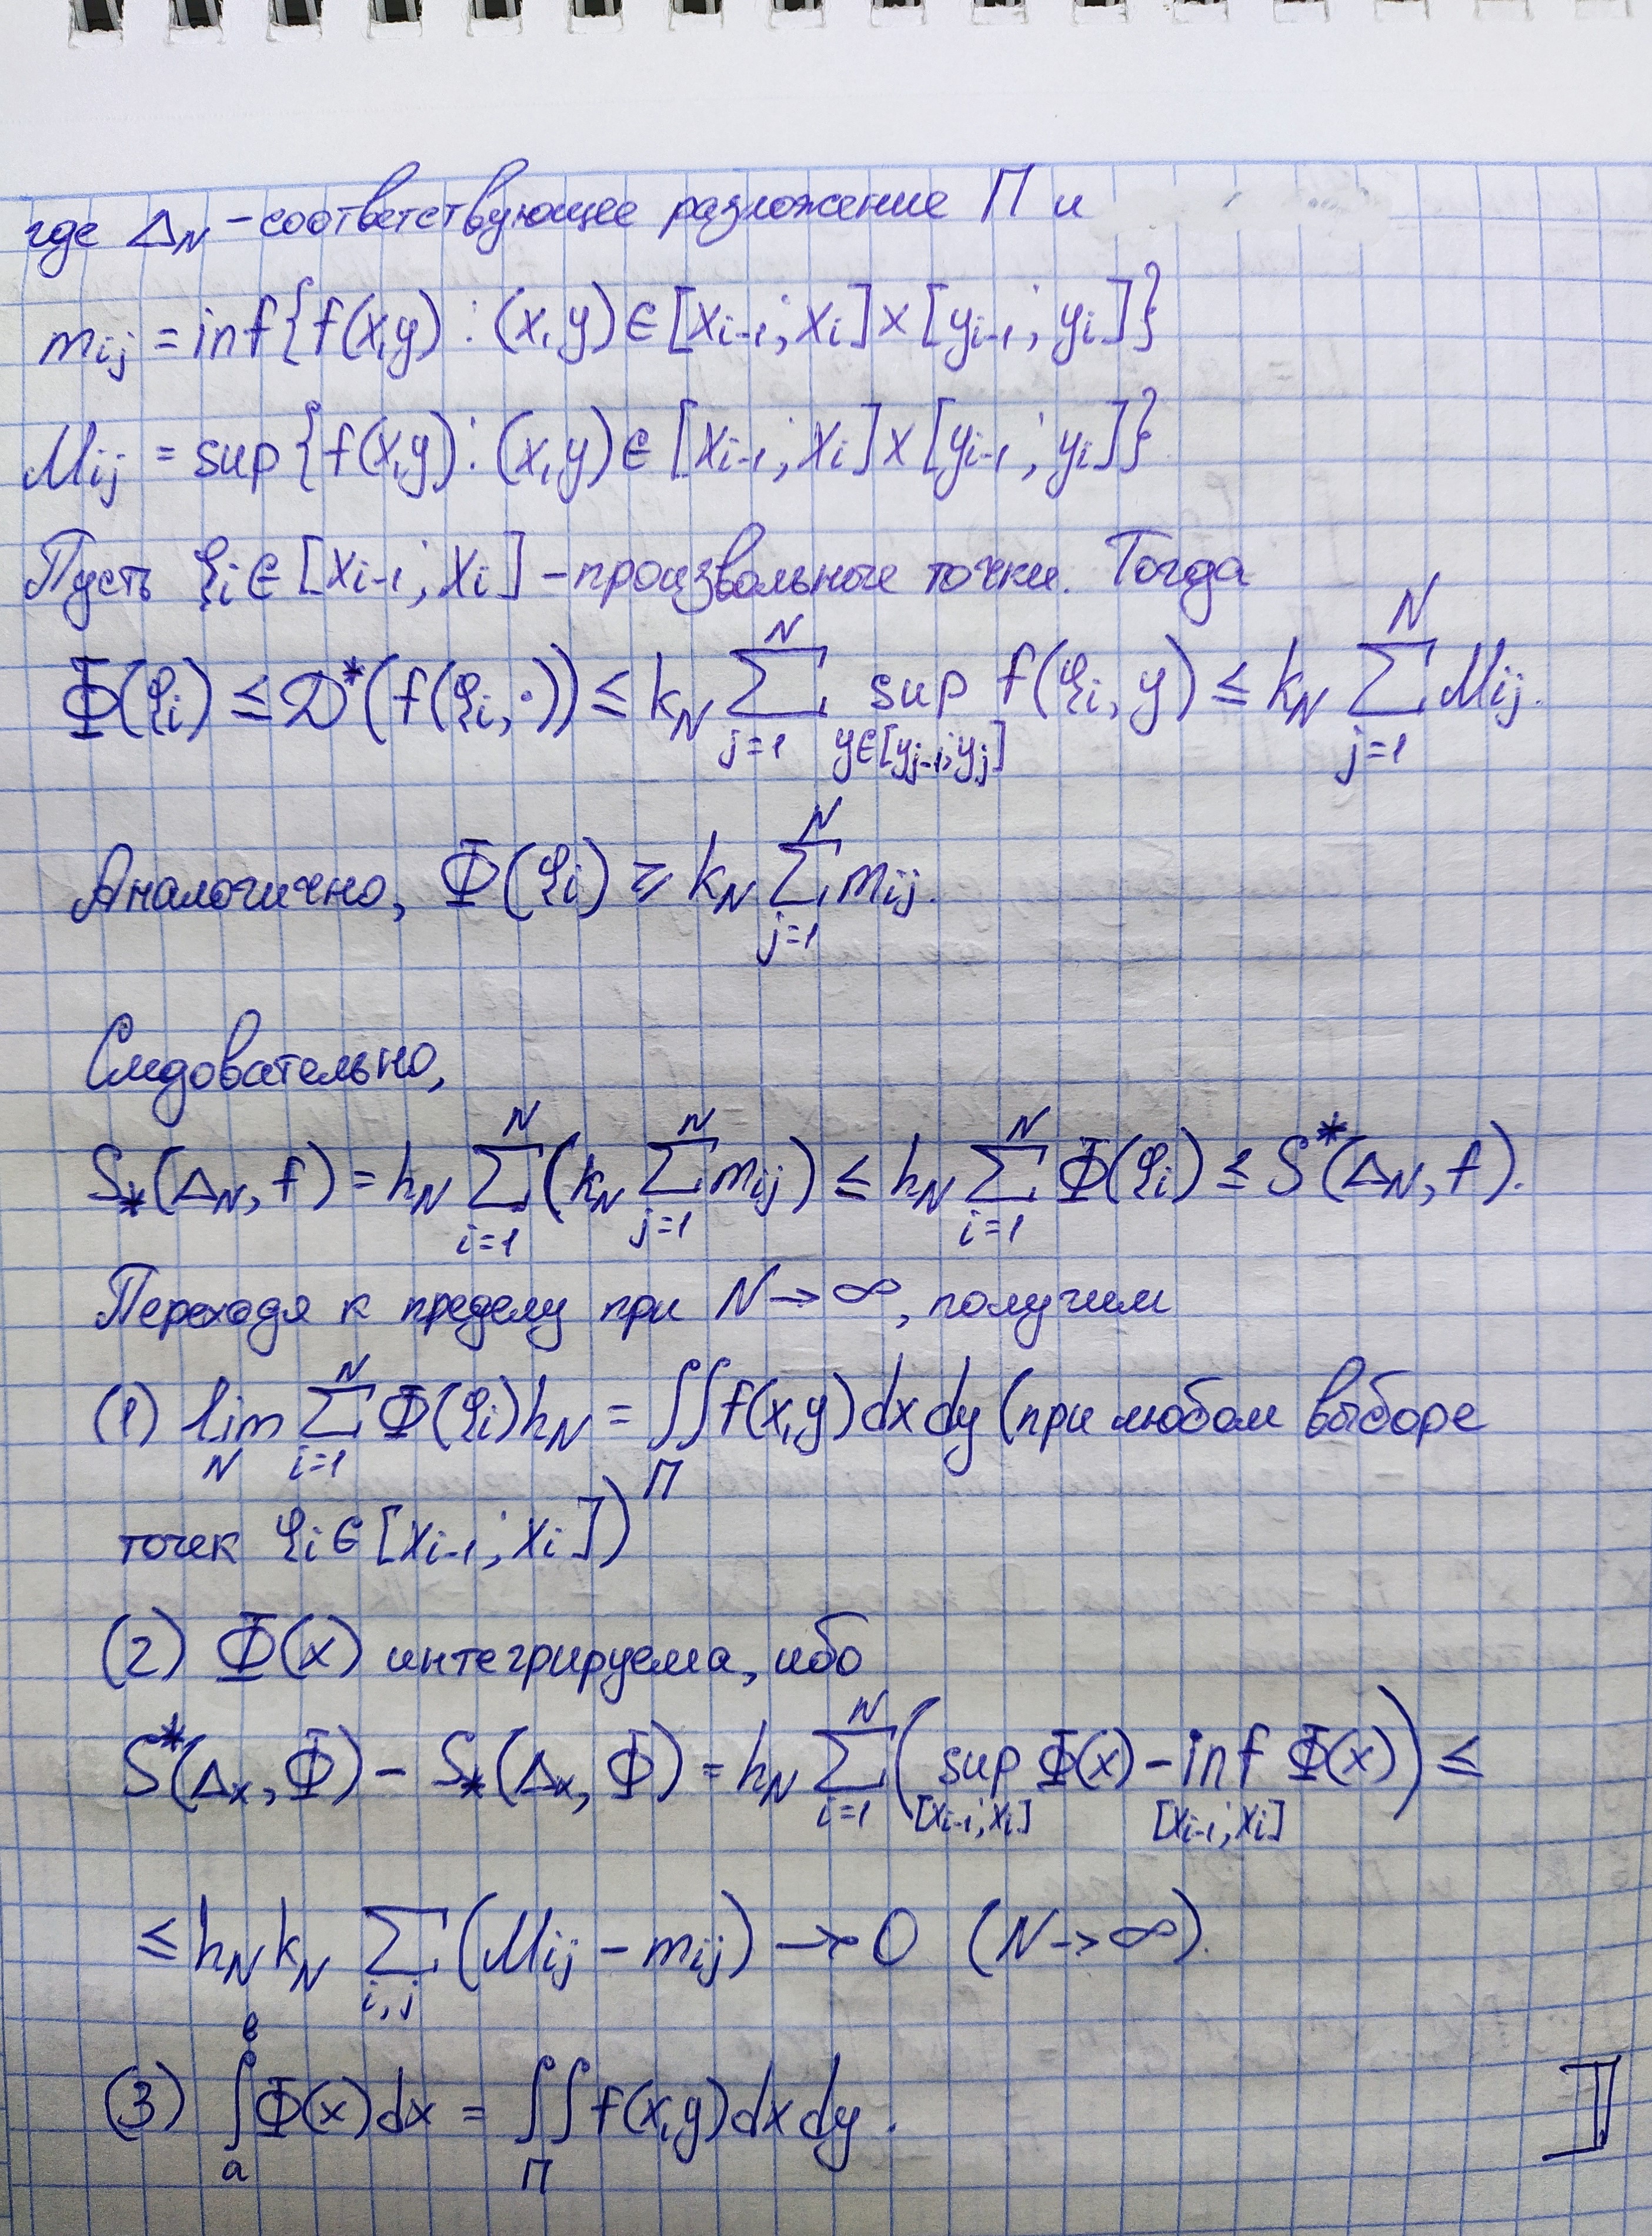 где Δ_N – соответствующее разложение П и
m_ij = inf{f(x,y) : (x,y) ∈ [x_{i-1}; x_i] × [y_{i-1}; y_i]}
M_ij = sup{f(x,y) : (x,y) ∈ [x_{i-1}; x_i] × [y_{i-1}; y_i]}
Пусть ξ_i ∈ [x_{i-1}; x_i] – произвольные точки. Тогда
Φ(ξ_i) ≤ D*(f(ξ_i, ·)) ≤ k_N ∑_{j=1}^{N} sup_{y∈[y_{j-1}; y_j]} f(ξ_i, y) ≤ k_N ∑_{j=1}^{N} M_ij.
Аналогично, Φ(ξ_i) ≥ k_N ∑_{j=1}^{N} m_ij.
Следовательно,
S_*(Δ_N, f) = h_N ∑_{i=1}^{N} (k_N ∑_{j=1}^{N} m_ij) ≤ h_N ∑_{i=1}^{N} Φ(ξ_i) ≤ S*(Δ_N, f).
Переходя к пределу при N → ∞, получим
(1) lim_N ∑_{i=1}^{N} Φ(ξ_i) h_N = ∬_П f(x,y) dx dy (при любом выборе
точек ξ_i ∈ [x_{i-1}; x_i])
(2) Φ(x) интегрируема, ибо
S*(Δ_x, Φ) – S_*(Δ_x, Φ) = h_N ∑_{i=1}^{N} (sup_{[x_{i-1}; x_i]} Φ(x) – inf_{[x_{i-1}; x_i]} Φ(x)) ≤
≤ h_N k_N ∑_{i,j} (M_ij – m_ij) → 0 (N → ∞).
(3) ∫_a^b Φ(x) dx = ∬_П f(x,y) dx dy.